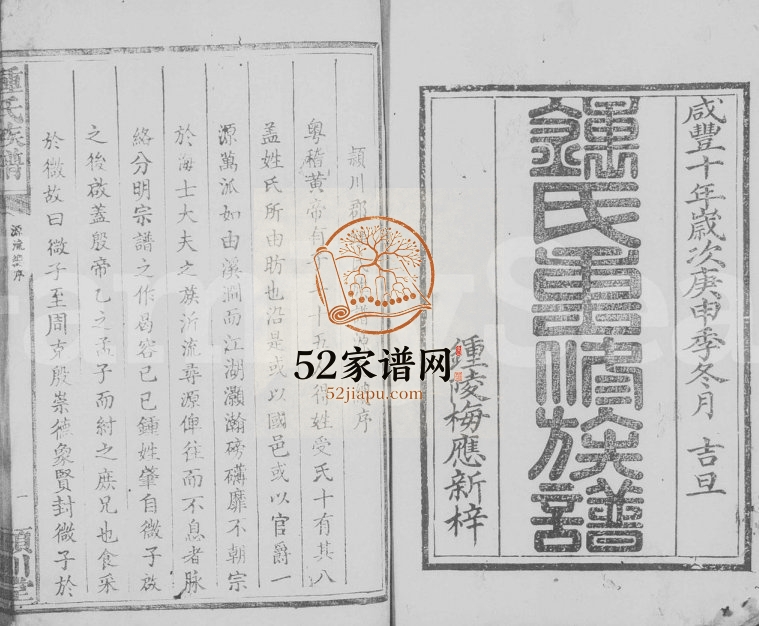 咸豐十年歲次庚申季冬月 吉旦
鍾氏重脩族譜
鍾陵梅應新梓
頴川郡 序
粵稽黃帝 姓受氏十有其八
蓋姓氏所由昉也沿是或以國邑或以官爵一
源萬派如由溪澗而江湖灝瀚磅礴靡不朝宗
於海士大夫之族沂流尋源俾往而不息者脉
絡分明宗譜之作曷容已已鍾姓肇自微子啟
之後啟蓋殷帝乙之孟子而紂之庶兄也食采
於微故曰微子至周克殷崇德象賢封微子於
鍾氏族譜
源流總序
一
頴川堂
52家谱网
52jiapu.com